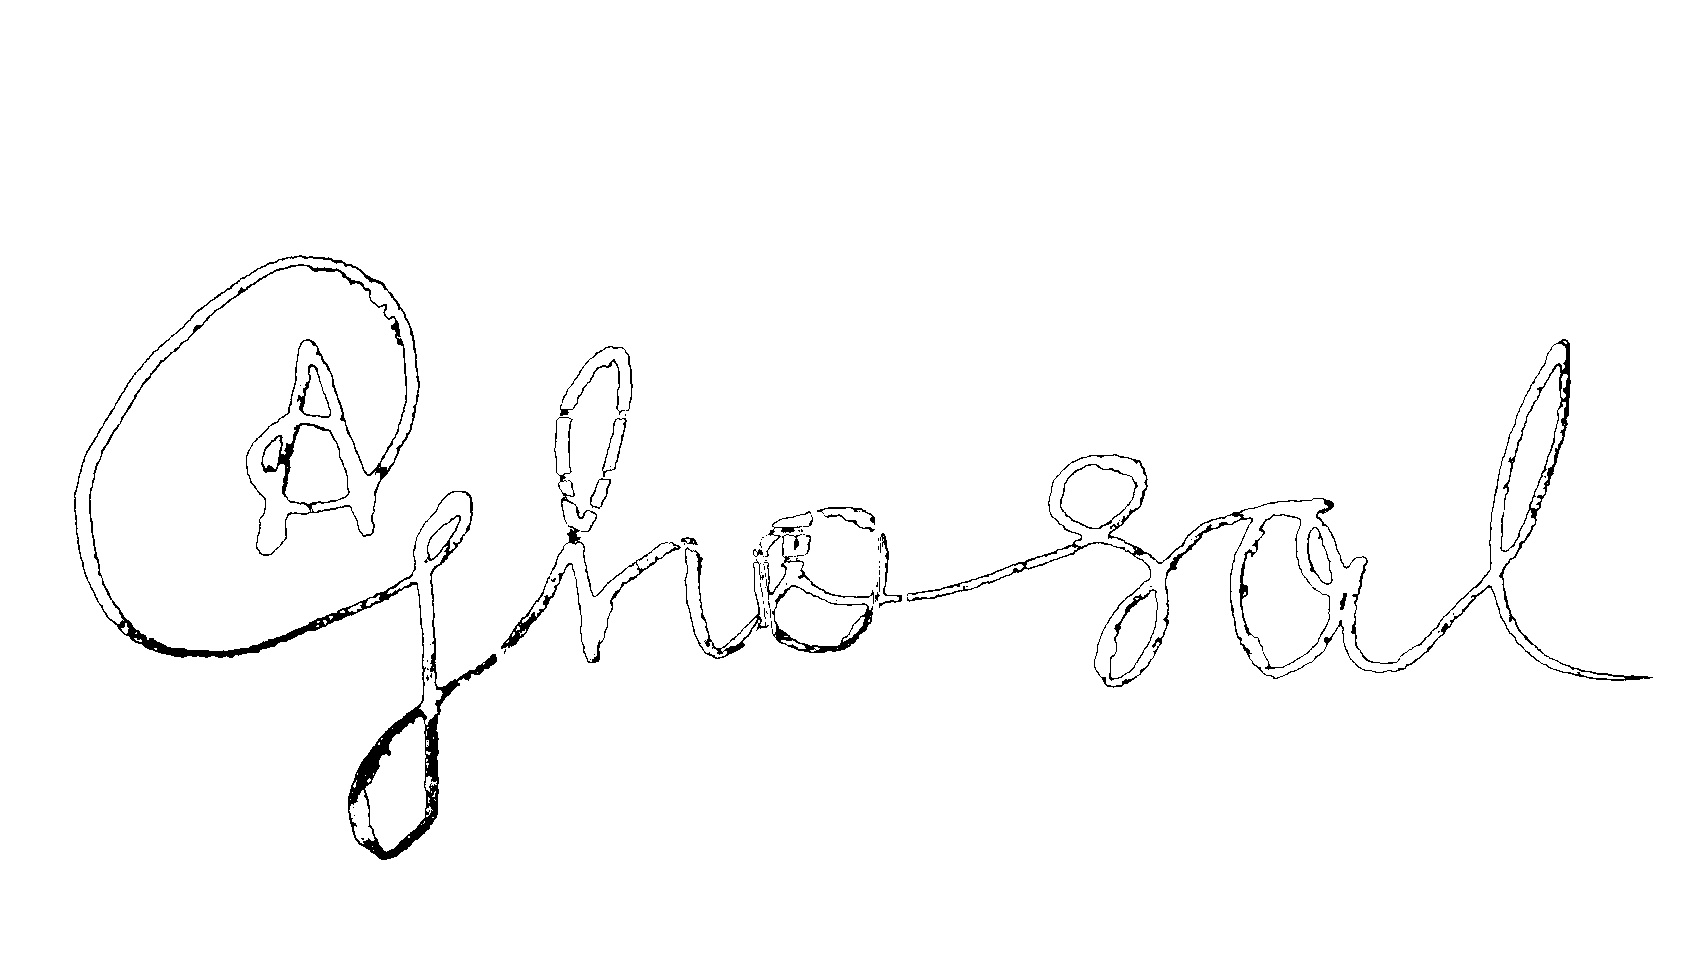 A Ghosal